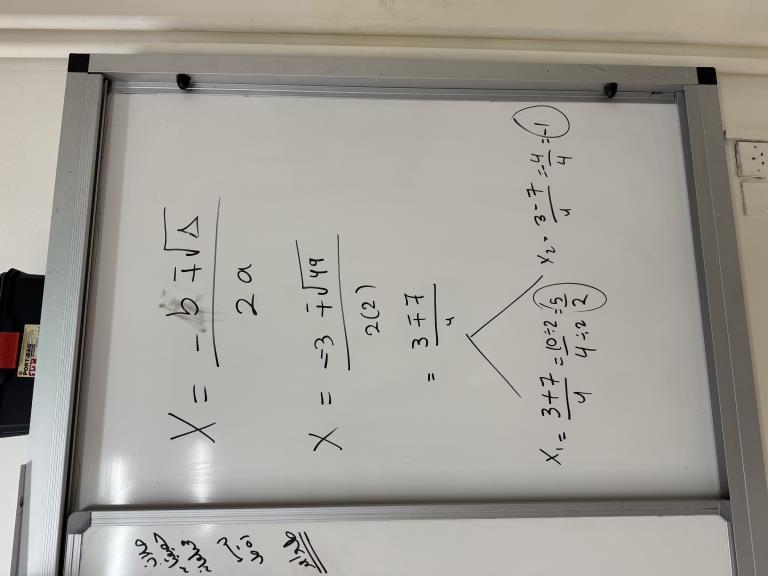 X = (-b ∓ √Δ) / 2a
X = (--3 ∓ √49) / 2(2)
= (3 ∓ 7) / 4
X₁ = (3+7) / 4 = (10÷2) / (4÷2) = 5/2
X₂ = (3-7) / 4 = -4/4 = -1